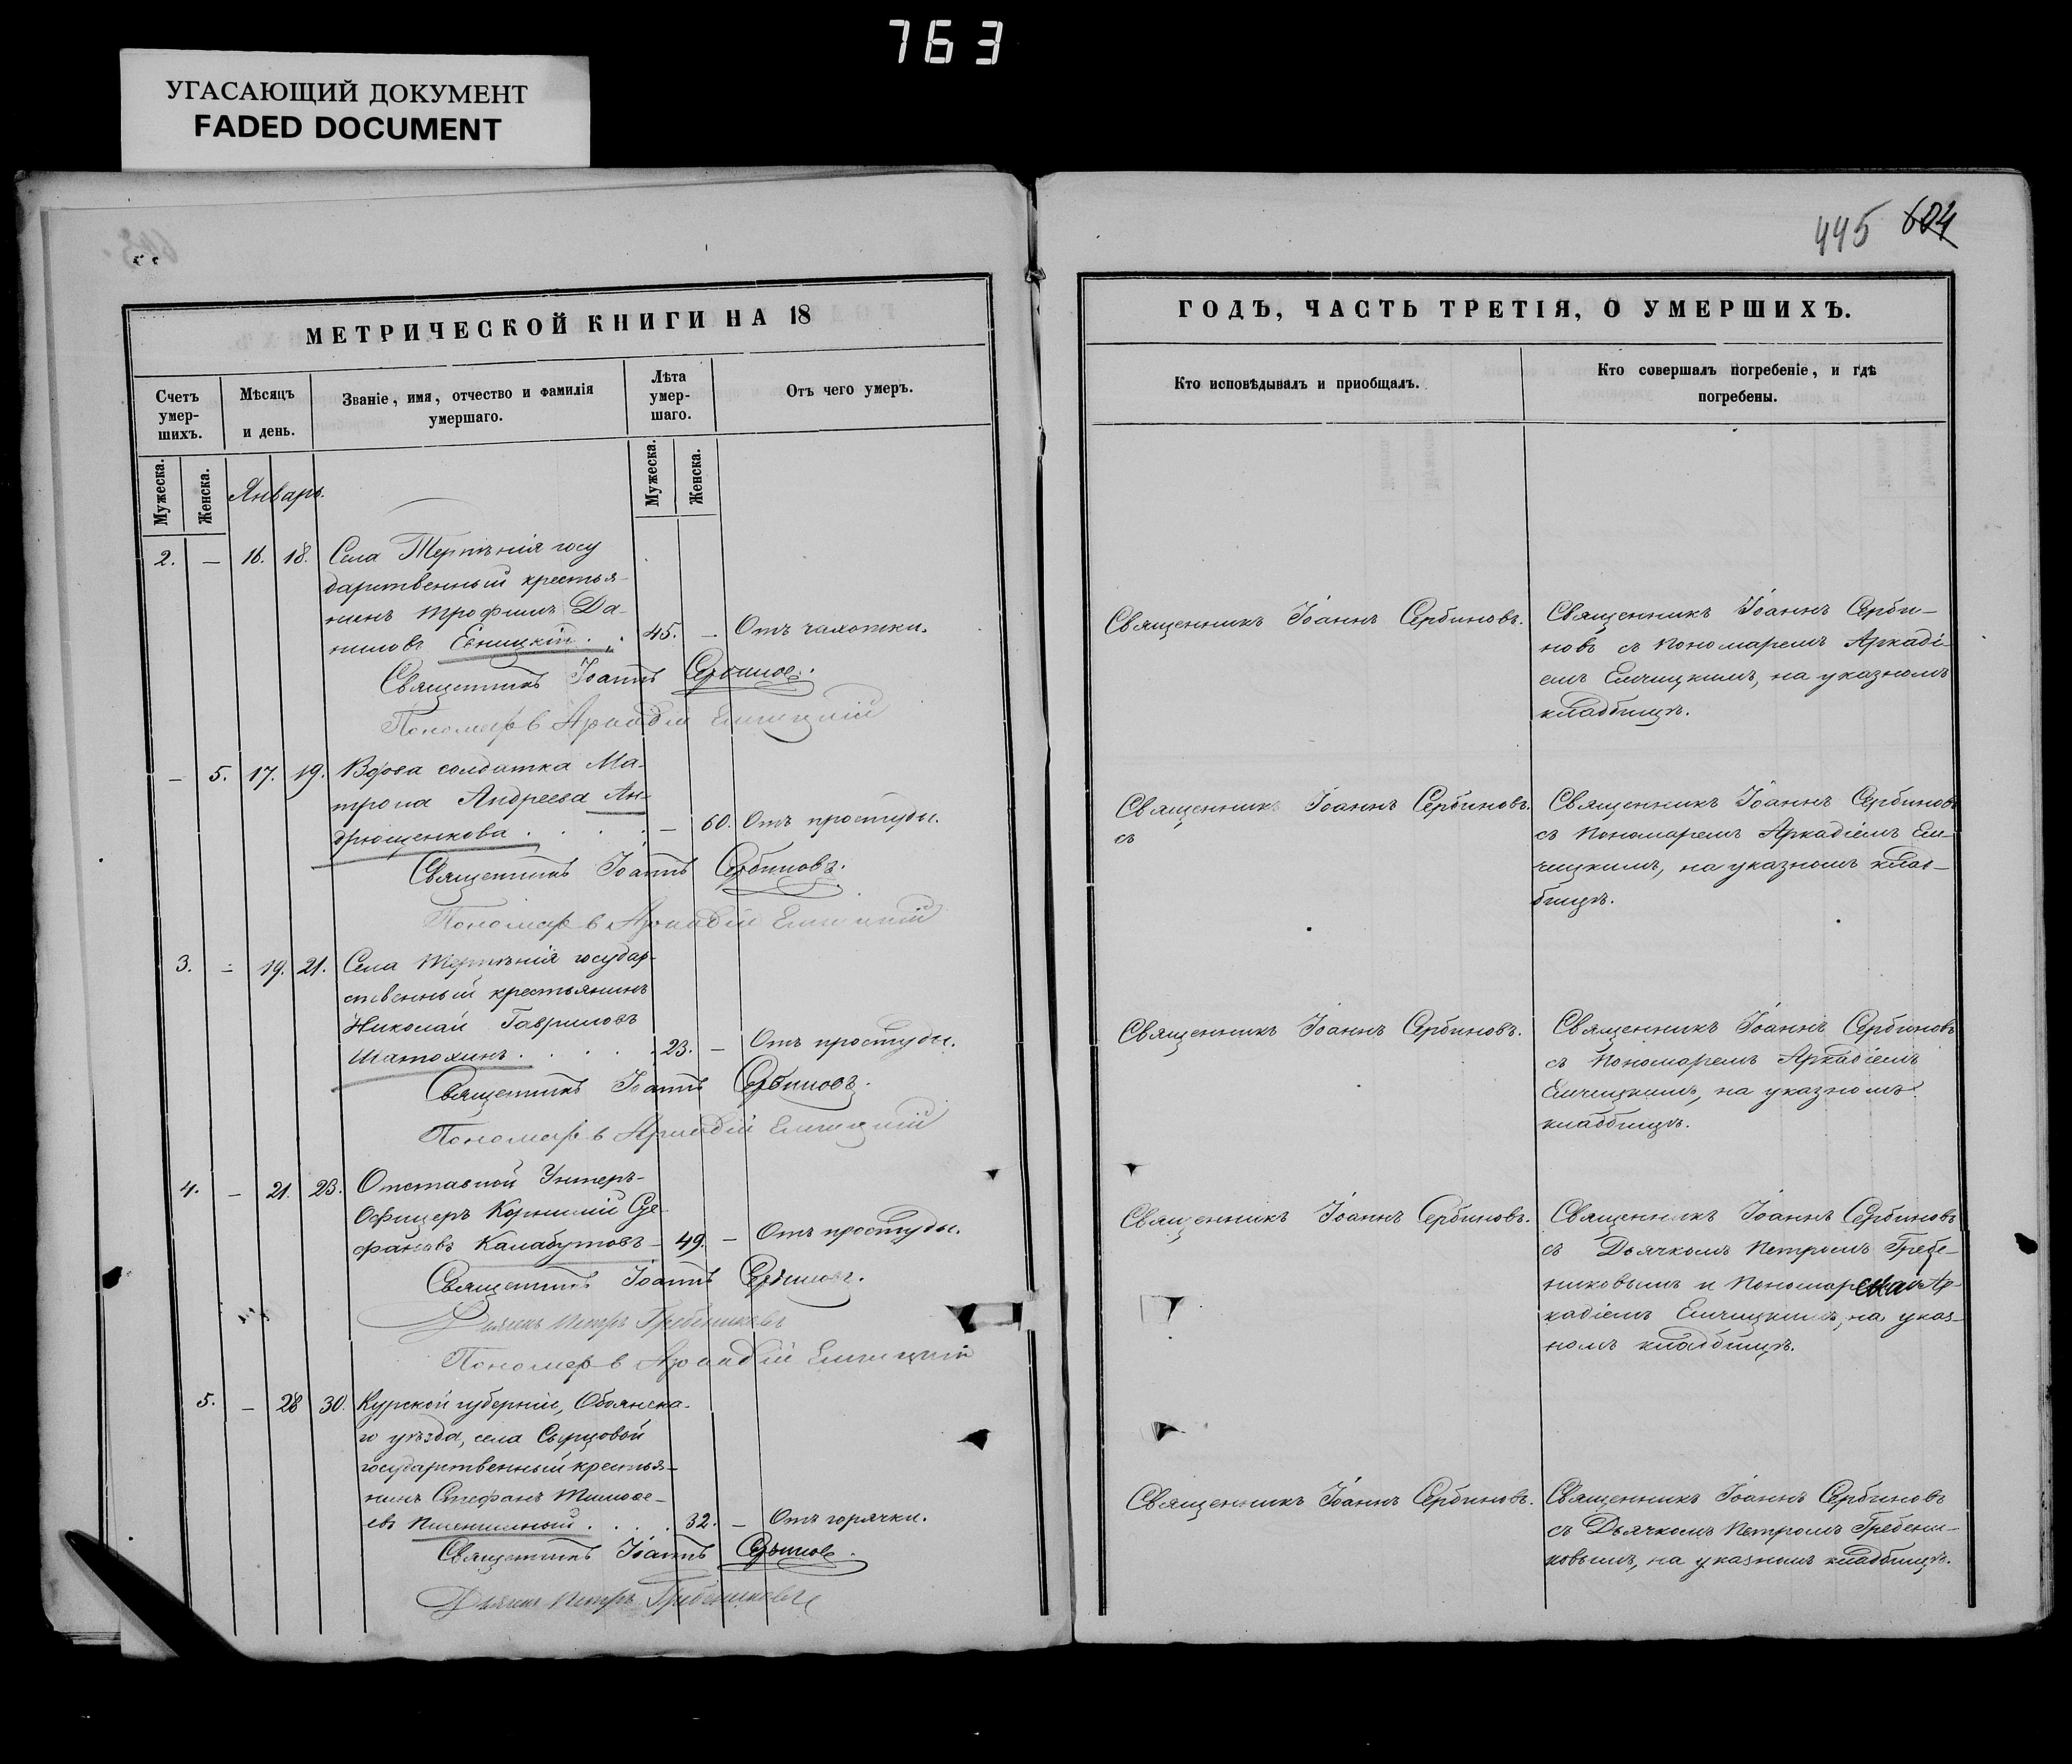 763
УГАСАЮЩИЙ ДОКУМЕНТ
FADED DOCUMENT
МЕТРИЧЕСКОЙ КНИГИ НА 18
Счетъ умер-шихъ.
Мѣсяцъ и день.
Званіе, имя, отчество и фамилія умершаго.
Лѣта умер-шаго.
Отъ чего умеръ.
Мужеска.
Женска.
Январь.
Мужеска.
Женска.
2. — 16. 18. Села Терпѣнія госу
дарственный крестья-
нинъ Трофимъ Да-
ниловъ . . 45. — Отъ чахотки.
Священникъ Іоаннъ Сербиновъ.
Пономарь Аркадій Емчицкій
— 5. 17. 19. Вдова солдатка Ма-
трона Андреева Ан-
дрющенкова . . . . — 60. Отъ простуды.
Священникъ Іоаннъ Сербиновъ.
Пономарь Аркадій Емчицкій
3. — 19. 21. Села Терпѣнія государ-
ственный крестьянинъ
Николай Гавриловъ
Шатохинъ . . . . . 23. — Отъ простуды.
Священникъ Іоаннъ Сербиновъ.
Пономарь Аркадій Емчицкій
4. — 21. 23. Отставной Унтеръ-
Офицеръ Корнилій Сте-
фановъ Калабутовъ — 49. — Отъ простуды.
Священникъ Іоаннъ Сербиновъ.
Дьячекъ Петръ Гребениковъ
Пономарь Аркадій Емчицкій
5. — 28 30. Курской губерніи, Обоянска-
го уѣзда, села Сырцовой
государственный крестья-
нинъ Стефанъ Тимофе-
евъ Пшеничный . . . . 32. — Отъ горячки.
Священникъ Іоаннъ Сербиновъ.
Дьячекъ Петръ Гребениковъ
445 604
ГОДЪ, ЧАСТЬ ТРЕТІЯ, О УМЕРШИХЪ.
Кто исповѣдывалъ и пріобщалъ.
Кто совершалъ погребеніе, и гдѣ
погребены.
Священникъ Іоаннъ Сербиновъ.
Священникъ Іоаннъ Серби-
новъ съ Пономаремъ Аркаді-
емъ Емчицкимъ, на указномъ
кладбищѣ.
Священникъ Іоаннъ Сербиновъ.
съ
Священникъ Іоаннъ Сербиновъ
съ Пономаремъ Аркадіемъ Ем-
чицкимъ, на указномъ клад-
бищѣ.
Священникъ Іоаннъ Сербиновъ.
Священникъ Іоаннъ Сербиновъ
съ Пономаремъ Аркадіемъ
Емчицкимъ, на указномъ
кладбищѣ.
Священникъ Іоаннъ Сербиновъ.
Священникъ Іоаннъ Сербиновъ
съ Дьячкомъ Петромъ Гребе-
никовымъ и Пономаремъ Ар-
кадіемъ Емчицкимъ, на указ-
номъ кладбищѣ.
Священникъ Іоаннъ Сербиновъ.
Священникъ Іоаннъ Сербиновъ
съ Дьячкомъ Петромъ Гребени-
ковымъ, на указномъ кладбищѣ.